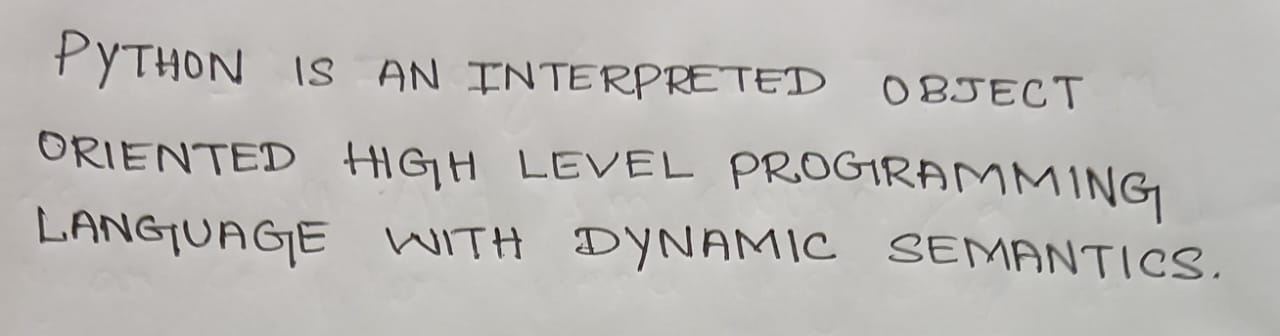 PYTHON IS AN INTERPRETED OBJECT
ORIENTED HIGH LEVEL PROGRAMMING
LANGUAGE WITH DYNAMIC SEMANTICS.